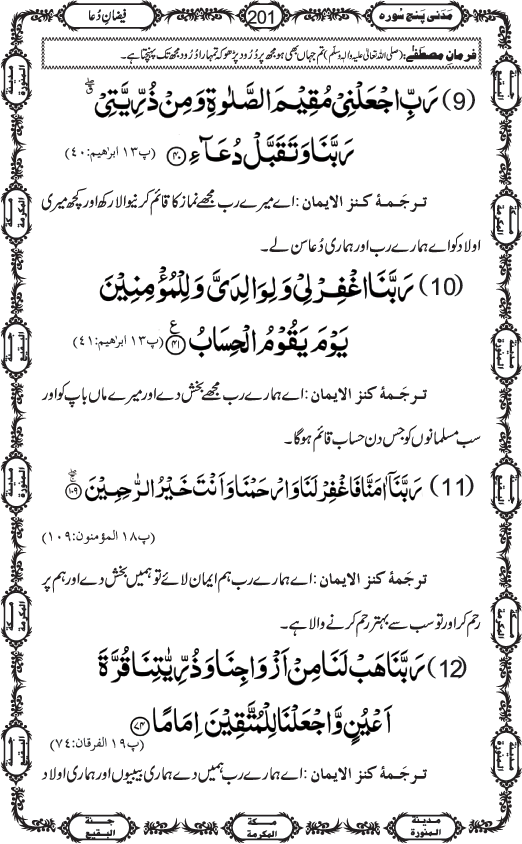 مَدَنی پَنج سُورہ 201 فیضانِ دُعا
فرمانِ مصطفٰے: (صلی اللہ تعالیٰ علیہ والہ وسلّم) تم جہاں بھی ہو مجھ پر دُرُود پڑھو کہ تمہارا دُرُود مجھ تک پہنچتا ہے۔
(9) رَبِّ اجْعَلْنِیْ مُقِیْمَ الصَّلٰوةِ وَمِنْ ذُرِّیَّتِیْ ۖۗ
رَبَّنَا وَتَقَبَّلْ دُعَآءِ ﴿۴۰﴾ (پ۱۳ ابرھیم:۴۰)
ترجَمۂ کنز الایمان: اے میرے رب مجھے نماز کا قائم کرنیوالا رکھ اور کچھ میری
اولاد کو اے ہمارے رب اور ہماری دُعا سن لے۔
(10) رَبَّنَا اغْفِرْ لِیْ وَلِوَالِدَیَّ وَلِلْمُؤْمِنِیْنَ
یَوْمَ یَقُوْمُ الْحِسَابُ ﴿۴۱﴾ ع (پ۱۳ ابرھیم:۴۱)
ترجَمۂ کنز الایمان: اے ہمارے رب مجھے بخش دے اور میرے ماں باپ کو اور
سب مسلمانوں کو جس دن حساب قائم ہوگا۔
(11) رَبَّنَاۤ اٰمَنَّا فَاغْفِرْ لَنَا وَارْحَمْنَا وَاَنْتَ خَیْرُ الرّٰحِمِیْنَ ﴿۱۰۹﴾
(پ۱۸ المؤمنون:۱۰۹)
ترجَمۂ کنز الایمان: اے ہمارے رب ہم ایمان لائے تو ہمیں بخش دے اور ہم پر
رحم کر اور تو سب سے بہتر رحم کرنے والا ہے۔
(12) رَبَّنَا هَبْ لَنَا مِنْ اَزْوَاجِنَا وَذُرِّیّٰتِنَا قُرَّةَ
اَعْیُنٍ وَّاجْعَلْنَا لِلْمُتَّقِیْنَ اِمَامًا ﴿۷۴﴾ (پ۱۹ الفرقان:۷۴)
ترجَمۂ کنز الایمان: اے ہمارے رب ہمیں دے ہماری بیبیوں اور ہماری اولاد
مدینة المنورة
مکة المکرمة
جنة البقیع